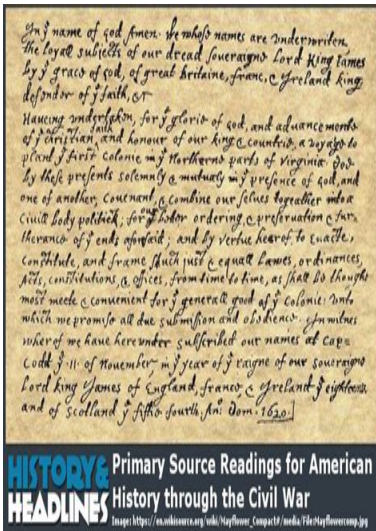 In yͤ name of god Amen. We whose names are underwriten,
the loyall subjects of our dread soveraigne Lord King James
by yͤ grace of god, of great Britaine, franc, & Ireland king,
defender of yͤ faith, &c
Haveing undertaken, for yͤ glorie of god, and advancemente
of yͤ christian faith and honour of our king & countrie, a voyage to
plant yͤ first colonie in yͤ Northerne parts of Virginia. Doe
by these presents solemnly & mutualy in yͤ presence of god, and
one of another, covenant, & combine our selves togeather into a
civill body politick; for our better ordering, & preservation & fur=
therance of yͤ ends aforesaid; and by vertue hearof, to enacte,
constitute, and frame shuch just & equall Lawes, ordinances,
Acts, constitutions, & offices, from time to time, as shall be thought
most meete & convenient for yͤ generall good of yͤ colonie: unto
which we promise all due submission and obedience. In witnes
wherof we have hereunder subscribed our names at Cap=
Codd yͤ .11. of November in yͤ year of yͤ raigne of our soveraigne
Lord king James of England, france, & Ireland yͤ eighteenth,
and of Scotland yͤ fiftie fourth. An: Dom. 1620.
HISTORY &
HEADLINES
Primary Source Readings for American
History through the Civil War
Image: https://en.wikisource.org/wiki/Mayflower_Compact#/media/File:Mayflowercomp.jpg